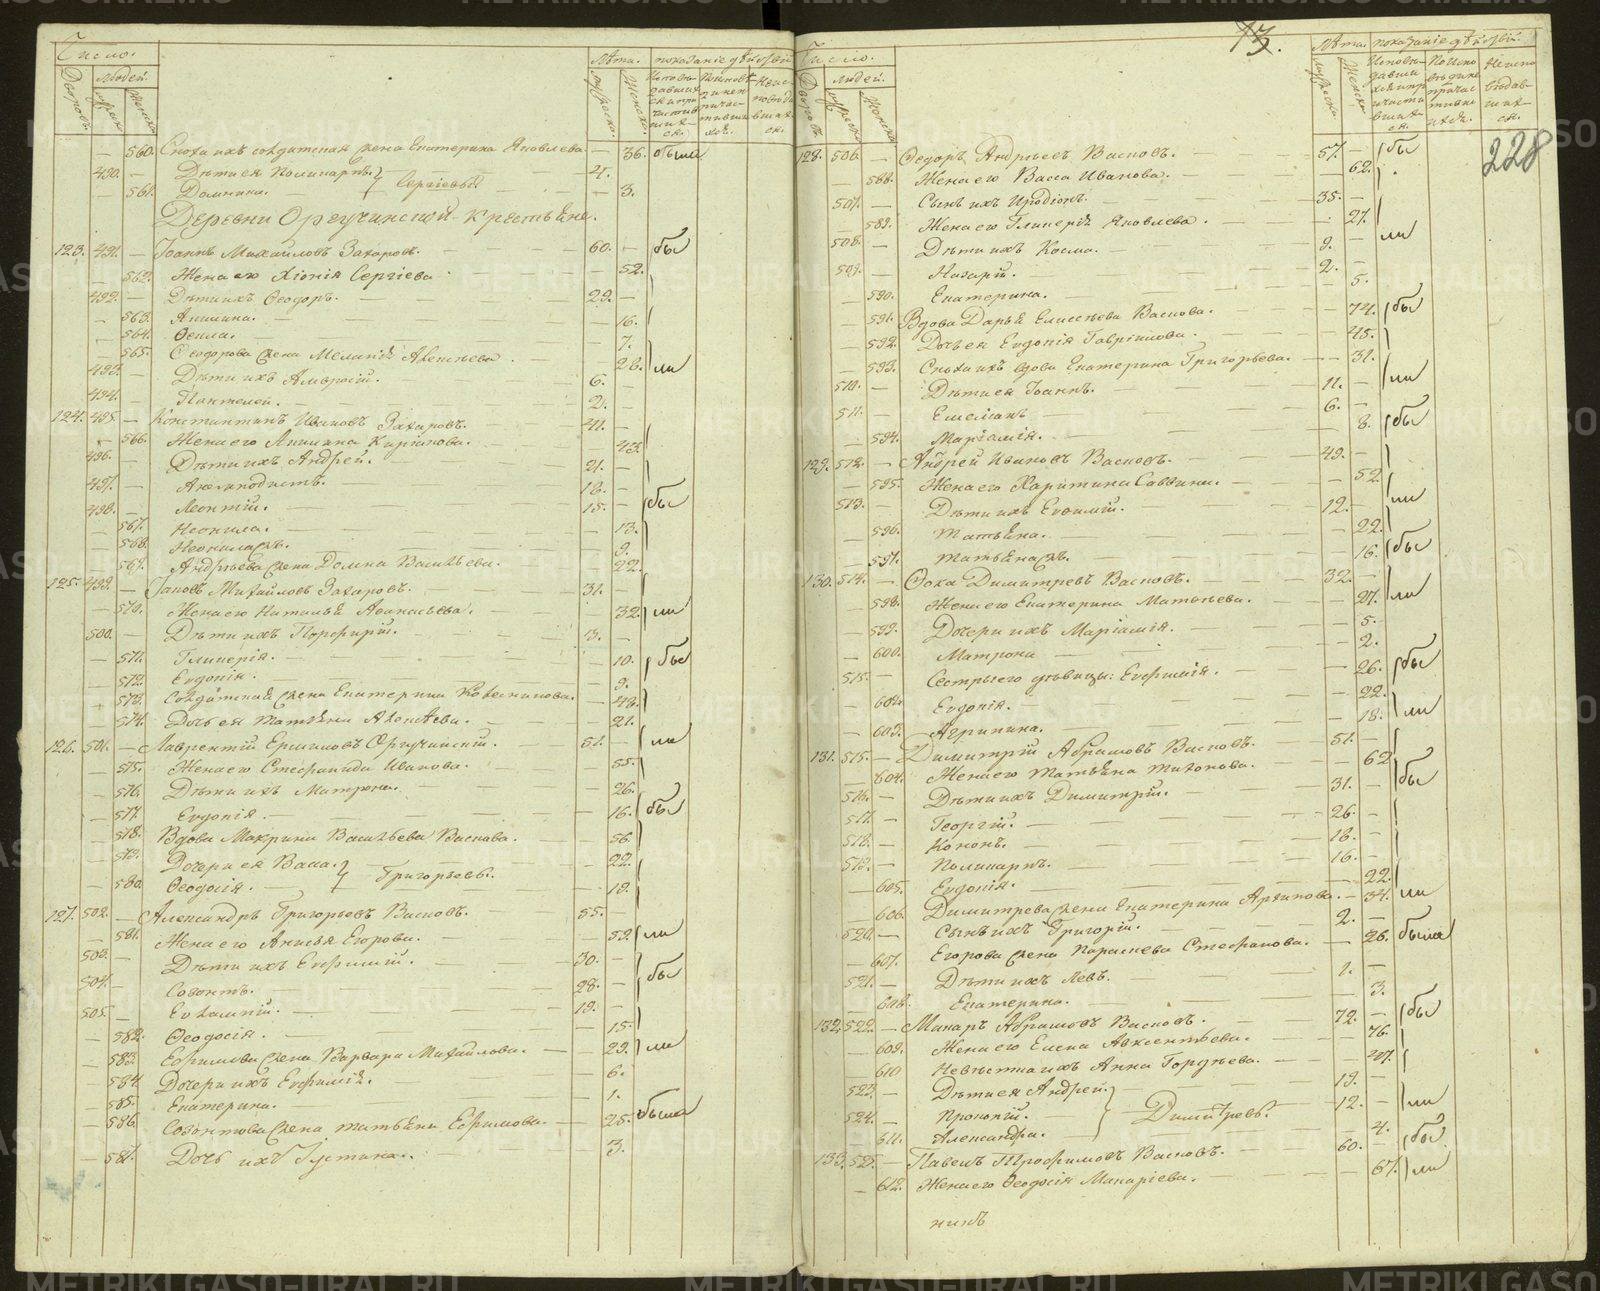 Число.
Лѣта. показаніе дѣйствій
Дворовъ. Людей. мужеска. женска.
560. Сноха ихъ солдатская жена Екатерина Яковлева — 36. были
490. — Дѣти ея Поликарпъ. 4. —
561. Домника. Сергіевы. — 3.
Деревни Оргучинской крестьяне.
123. 491. — Іоаннъ Михайловъ Захаровъ. 60. — бы
562. Жена его Хіонія Сергіева — 52.
492. — Дѣти ихъ Ѳеодоръ. 29. —
563. Акилина. — 16.
564. Ѳекла. — 7.
565. Ѳеодорова жена Меланія Авксентьева — 28. ли
493. — Дѣти ихъ Амвросій. 6. —
494. — Пантелей. 2. —
124. 495. — Константинъ Ивановъ Захаровъ. 41. —
566. Жена его Акилина Киріакова. — 43.
496. — Дѣти ихъ Андрей. 21. —
497. — Анемподистъ. 18. —
498. — Леонтій. 15. — бы
567. Неонила. — 13.
568. Неонила жъ. — 9.
569. Андрѣева жена Домна Васильева. — 22.
125. 499. — Михайловъ Захаровъ. 31. —
570. Жена его Наталья Аѳанасьева. — 32. ли
500. — Дѣти ихъ Порфирій. 3. —
571. Гликерія. — 10. бы
572. Евдокія. — 9.
573. Солдатская жена Екатерина Колесникова. — 48.
574. Дочь ея Татьяна — 21.
126. 501. — Лаврентій Ермиловъ Оргучинскій. 51. — ли
575. Жена его Стефанида Иванова. — 55.
576. Дѣти ихъ Матрона. — 26.
577. Евдокія. — 16. бы
578. Вдова Макрина Васильева Васкова. — 56.
579. Дочери ея Васса. — 22.
580. Ѳеодосія. Григорьевы. — 19.
127. 502. — Александръ Григорьевъ Васковъ. 55. —
581. Жена его Анисья Егорова. — 59. ли
503. — Дѣти ихъ Евфимій. 30. —
504. — Созонтъ. 28. — бы
505. — Евлампій. 19. —
582. Ѳеодосія. — 15.
583. Ефимова жена Варвара Михайлова. — 29. ли
584. Дочери ихъ Евфимія. — 6.
585. Екатерина. — 1.
586. Созонтова жена Татьяна Ефимова. — 25. была
587. Дочь ихъ Густина. — 3.
13.
228
Число.
Лѣта. показаніе дѣйствій.
Дворовъ. Людей. мужеска. женска.
128. 506. — Ѳедоръ Андрѣевъ Васковъ. 57. — бы
588. Жена его Васса Иванова. — 62.
507. — Сынъ ихъ Иродіонъ. 35. —
589. Жена его Гликерія Яковлева. — 27.
508. — Дѣти ихъ Косма. 9. — ли
509. — Назарій. 2. —
590. Екатерина. — 5.
591. Вдова Дарья Елисѣева Васкова. — 74. бы
592. Дочь ея Евдокія Гавріилова. — 45.
593. Сноха ихъ вдова Екатерина Григорьева. — 31.
510. — Дѣти ея Іоаннъ. 11. — ли
511. — Емеліанъ 6. —
594. Маріамія. — 8. бы
129. 512. — Андрей Ивановъ Васковъ. 49. —
595. Жена его Харитина Саввина. — 52.
513. — Дѣти ихъ Евфимій. 12. — ли
596. Татьяна. — 22.
597. Татьяна жъ. — 16. бы
130. 514. — Ѳока Димитріевъ Васковъ. 32. —
598. Жена его Екатерина Матвѣева. — 27. ли
599. Дочери ихъ Маріамія. — 5.
600. Матрона — 2.
515. — Сестры его дѣвицы: Евфимія. — 26. бы
602. Евдокія. — 22.
603. Агрипина. — 18. ли
131. 515. — Димитрій Абрамовъ Васковъ. 51. —
604. Жена его Татьяна Тихонова. — 62
516. — Дѣти ихъ Димитрій. 31. — бы
517. — Георгій. 26. —
518. — Кононъ. 18. —
519. — Поликарпъ. 16. —
605. Евдокія. — 22.
606. Димитрева жена Екатерина Архипова. — 34. ли
520. — Сынъ ихъ Григорій. 2. —
607. Егорова жена Параскева Стефанова. — 26. была
521. — Дѣти ихъ Левъ. 1. —
608. Екатерина. — 3.
132. 522. — Макаръ Абрамовъ Васковъ. 72. — бы
609. Жена его Елена Авксентьева. — 76.
610 Невѣстка ихъ Анна Гордѣева. — 47.
523. — Дѣти ея Андрей. 19. —
524. — Прокопій. Димитревы. 12. — ли
611. Александра. — 4.
133. 525. — Павелъ Трофимовъ Васковъ. 60. — бы
612. Жена его Ѳеодосія Макаріева. — 67. ли
никъ
METRIKI.GASO-URAL.RU